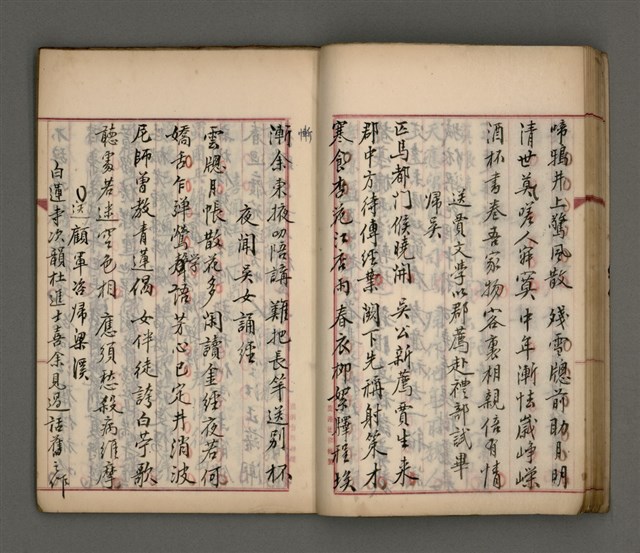 啼鴉井上驚風散 殘雪牕前助月明
清世莫嗟人寂寞 中年漸怯歲崢嶸
酒杯書卷吾家物 客裏相親倍有情
送貫文學以郡薦赴禮部試畢
歸吳
匹馬都門候曉開 吳公新薦賈生來
郡中方待傳經業 闕下先稱射策才
寒食杏花江店雨 春衣柳絮驛程埃
慚
漸余東掖叨陪講 難把長竿送別杯
夜聞吳女誦經
雲牕月帳散花多 閑讀金經夜若何
嬌舌乍聞鶯學語 芳心已定井消波
尼師曾教青蓮偈 女伴徒誇白苧歌
聽處若迷空色相 應須愁殺病維摩
送顧軍咨歸梁溪
白蓮寺次韻杜進士喜余見過話舊之作